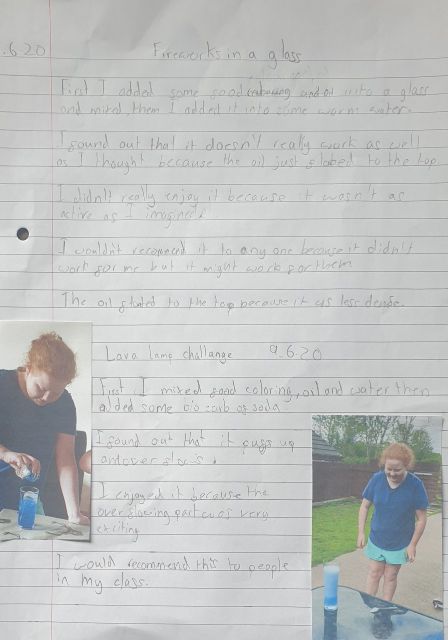 .6.20
Fireworks in a glass
First I added some good and oil into a glass
and mixed them I added it into some warm water.
I found out that it doesn't really work as well
as I thought because the oil just to the top
I didn't really enjoy it because it wasn't as
active as I imagined
I wouldn't recomend it to any one because it didn't
work for me but it might work for them
The oil to the top because it is less dense.
Lava lamp challange 9.6.20
First I mixed good coloring, oil and water then
added some bi carb of soda
I found out that it up
and
I enjoyed it because the
overflowing part was very
exciting
I would recommend this to people
in my class.